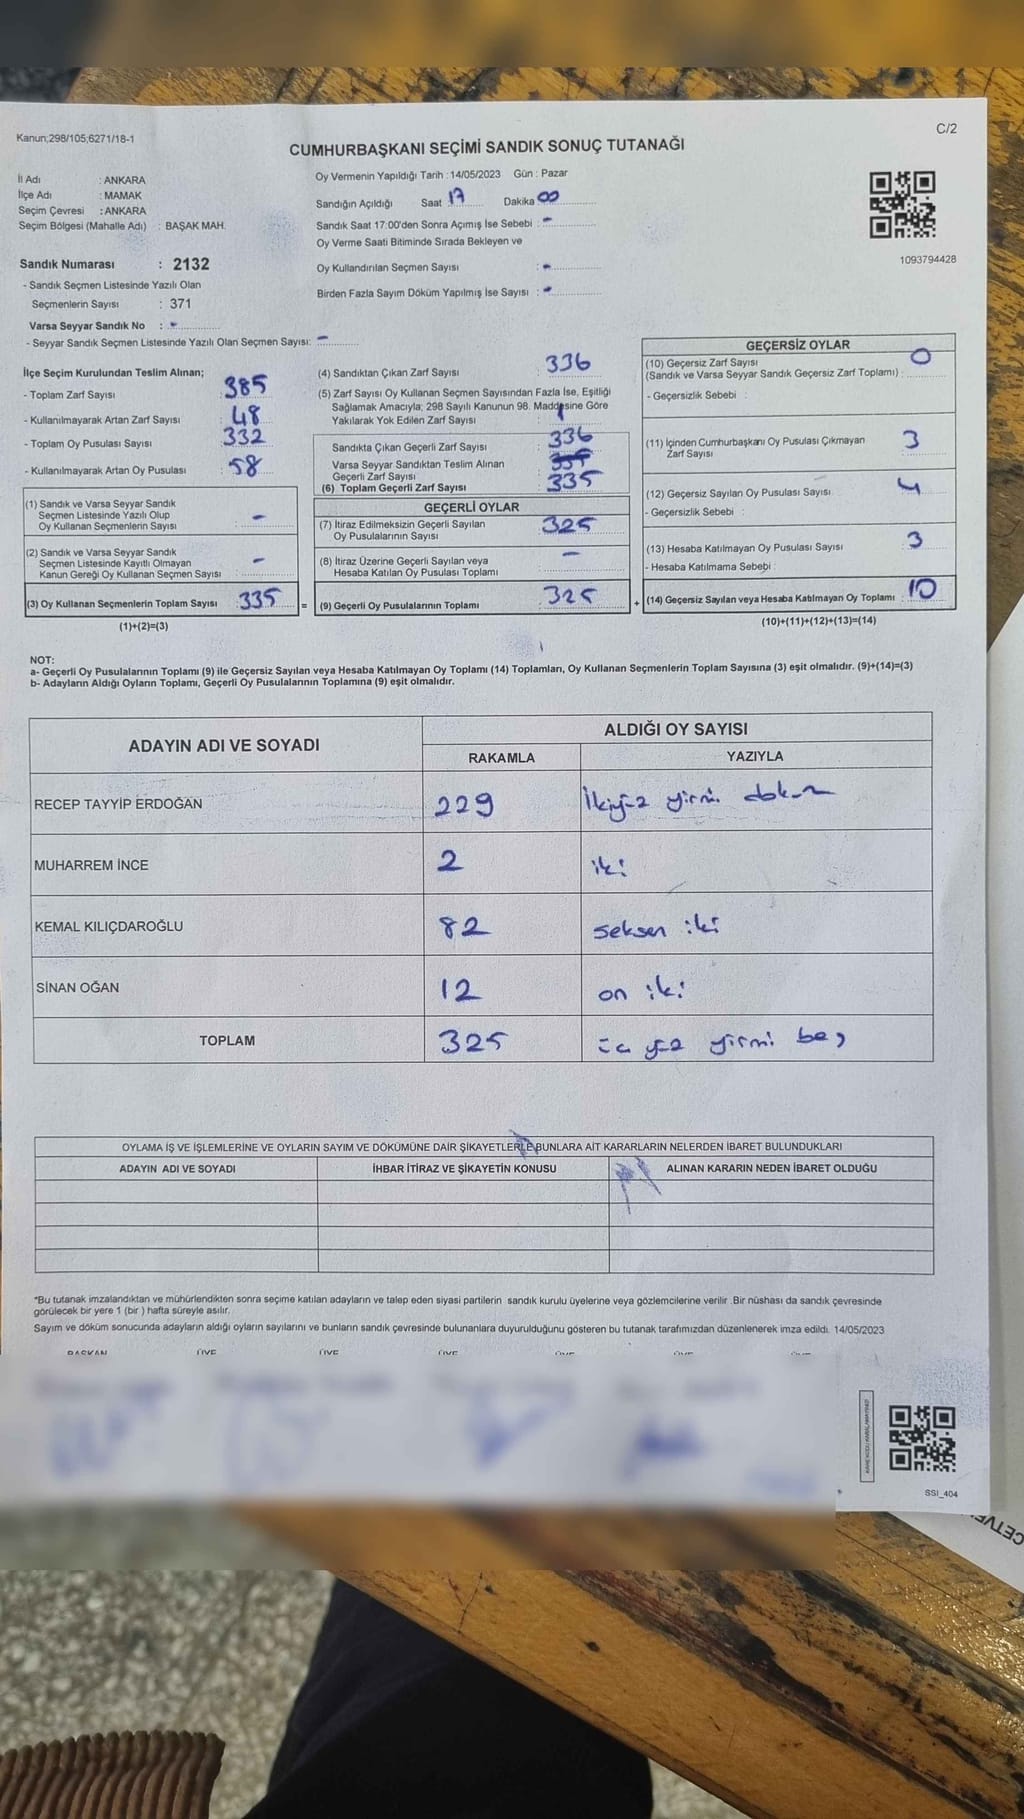 Kanun;298/105;6271/18-1
C/2
CUMHURBAŞKANI SEÇİMİ SANDIK SONUÇ TUTANAĞI
İl Adı : ANKARA
İlçe Adı : MAMAK
Seçim Çevresi : ANKARA
Seçim Bölgesi (Mahalle Adı) : BAŞAK MAH.
Sandık Numarası : 2132
- Sandık Seçmen Listesinde Yazılı Olan
Seçmenlerin Sayısı : 371
Varsa Seyyar Sandık No : -
- Seyyar Sandık Seçmen Listesinde Yazılı Olan Seçmen Sayısı: -
Oy Vermenin Yapıldığı Tarih : 14/05/2023 Gün : Pazar
Sandığın Açıldığı Saat 17 Dakika 00
Sandık Saat 17:00'den Sonra Açımış İse Sebebi : -
Oy Verme Saati Bitiminde Sırada Bekleyen ve
Oy Kullandırılan Seçmen Sayısı : -
Birden Fazla Sayım Döküm Yapılmış İse Sayısı : -
1093794428
İlçe Seçim Kurulundan Teslim Alınan;
- Toplam Zarf Sayısı : 385
- Kullanılmayarak Artan Zarf Sayısı : 48
- Toplam Oy Pusulası Sayısı : 332
- Kullanılmayarak Artan Oy Pusulası : 58
(1) Sandık ve Varsa Seyyar Sandık
Seçmen Listesinde Yazılı Olup
Oy Kullanan Seçmenlerin Sayısı : -
(2) Sandık ve Varsa Seyyar Sandık
Seçmen Listesinde Kayıtlı Olmayan
Kanun Gereği Oy Kullanan Seçmen Sayısı : -
(3) Oy Kullanan Seçmenlerin Toplam Sayısı : 335
(1)+(2)=(3)
(4) Sandıktan Çıkan Zarf Sayısı : 336
(5) Zarf Sayısı Oy Kullanan Seçmen Sayısından Fazla İse, Eşitliği
Sağlamak Amacıyla; 298 Sayılı Kanunun 98. Maddesine Göre
Yakılarak Yok Edilen Zarf Sayısı : 1
Sandıkta Çıkan Geçerli Zarf Sayısı : 336
Varsa Seyyar Sandıktan Teslim Alınan
Geçerli Zarf Sayısı
(6) Toplam Geçerli Zarf Sayısı : 335
GEÇERLİ OYLAR
(7) İtiraz Edilmeksizin Geçerli Sayılan
Oy Pusulalarının Sayısı : 325
(8) İtiraz Üzerine Geçerli Sayılan veya
Hesaba Katılan Oy Pusulası Toplamı : -
= (9) Geçerli Oy Pusulalarının Toplamı : 325 +
GEÇERSİZ OYLAR
(10) Geçersiz Zarf Sayısı
(Sandık ve Varsa Seyyar Sandık Geçersiz Zarf Toplamı) : 0
- Geçersizlik Sebebi :
(11) İçinden Cumhurbaşkanı Oy Pusulası Çıkmayan
Zarf Sayısı : 3
(12) Geçersiz Sayılan Oy Pusulası Sayısı : 4
- Geçersizlik Sebebi :
(13) Hesaba Katılmayan Oy Pusulası Sayısı : 3
- Hesaba Katılmama Sebebi :
(14) Geçersiz Sayılan veya Hesaba Katılmayan Oy Toplamı : 10
(10)+(11)+(12)+(13)=(14)
NOT:
a- Geçerli Oy Pusulalarının Toplamı (9) ile Geçersiz Sayılan veya Hesaba Katılmayan Oy Toplamı (14) Toplamları, Oy Kullanan Seçmenlerin Toplam Sayısına (3) eşit olmalıdır. (9)+(14)=(3)
b- Adayların Aldığı Oyların Toplamı, Geçerli Oy Pusulalarının Toplamına (9) eşit olmalıdır.
ADAYIN ADI VE SOYADI
ALDIĞI OY SAYISI
RAKAMLA YAZIYLA
RECEP TAYYİP ERDOĞAN 229 İkiyüz yirmi dokuz
MUHARREM İNCE 2 iki
KEMAL KILIÇDAROĞLU 82 seksen iki
SİNAN OĞAN 12 on iki
TOPLAM 325 üç yüz yirmi beş
OYLAMA İŞ VE İŞLEMLERİNE VE OYLARIN SAYIM VE DÖKÜMÜNE DAİR ŞİKAYETLERLE BUNLARA AİT KARARLARIN NELERDEN İBARET BULUNDUKLARI
ADAYIN ADI VE SOYADI İHBAR İTİRAZ VE ŞİKAYETİN KONUSU ALINAN KARARIN NEDEN İBARET OLDUĞU
*Bu tutanak imzalandıktan ve mühürlendikten sonra seçime katılan adayların ve talep eden siyasi partilerin sandık kurulu üyelerine veya gözlemcilerine verilir .Bir nüshası da sandık çevresinde
görülecek bir yere 1 (bir ) hafta süreyle asılır.
Sayım ve döküm sonucunda adayların aldığı oyların sayılarını ve bunların sandık çevresinde bulunanlara duyurulduğunu gösteren bu tutanak tarafımızdan düzenlenerek imza edildi. 14/05/2023
BAŞKAN ÜYE ÜYE ÜYE ÜYE ÜYE ÜYE
SSI_404